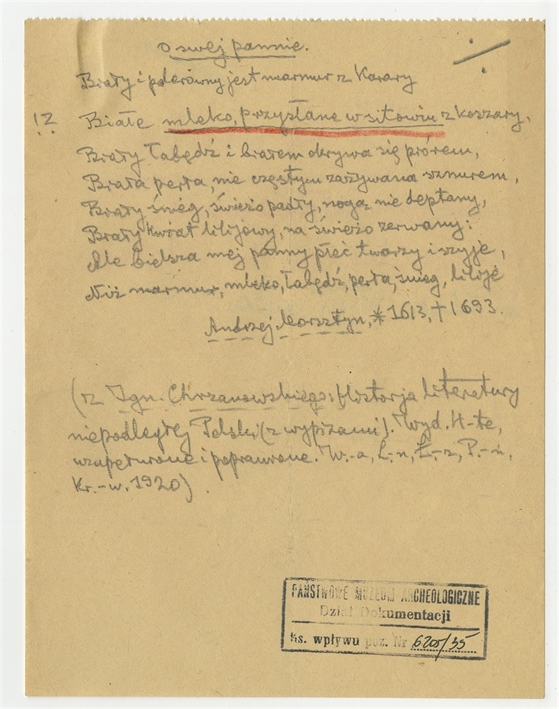 O swej pannie.
Biały i polerowny jest marmur z Karary
12 Białe mleko, przysłane w sitowiu z koszary,
Biały łabędź i białem okrywa się piórem,
Biała perła, nie częstym zażywana sznurem,
Biały śnieg, świeżo padły, nogą nie deptany,
Biały kwiat lilijowy, na świeżo zerwany:
Ale bielsza mej panny płeć twarzy i szyje,
Niż marmur, mleko, łabędź, perła, śnieg, lilije
Andrzej Morsztyn, * 1613, † 1693.
(z Ign. Chrzanowskiego: Historja literatury
niepodległej Polski (z wypisami). Wyd. H-te,
uzupełnione i poprawione. W.-a, L.-n, Ł.-z, P.-ń,
Kr.-w. 1920)
PAŃSTWOWE MUZEUM ARCHEOLOGICZNE
Dział Dokumentacji
ks. wpływu poz. Nr 6205/35